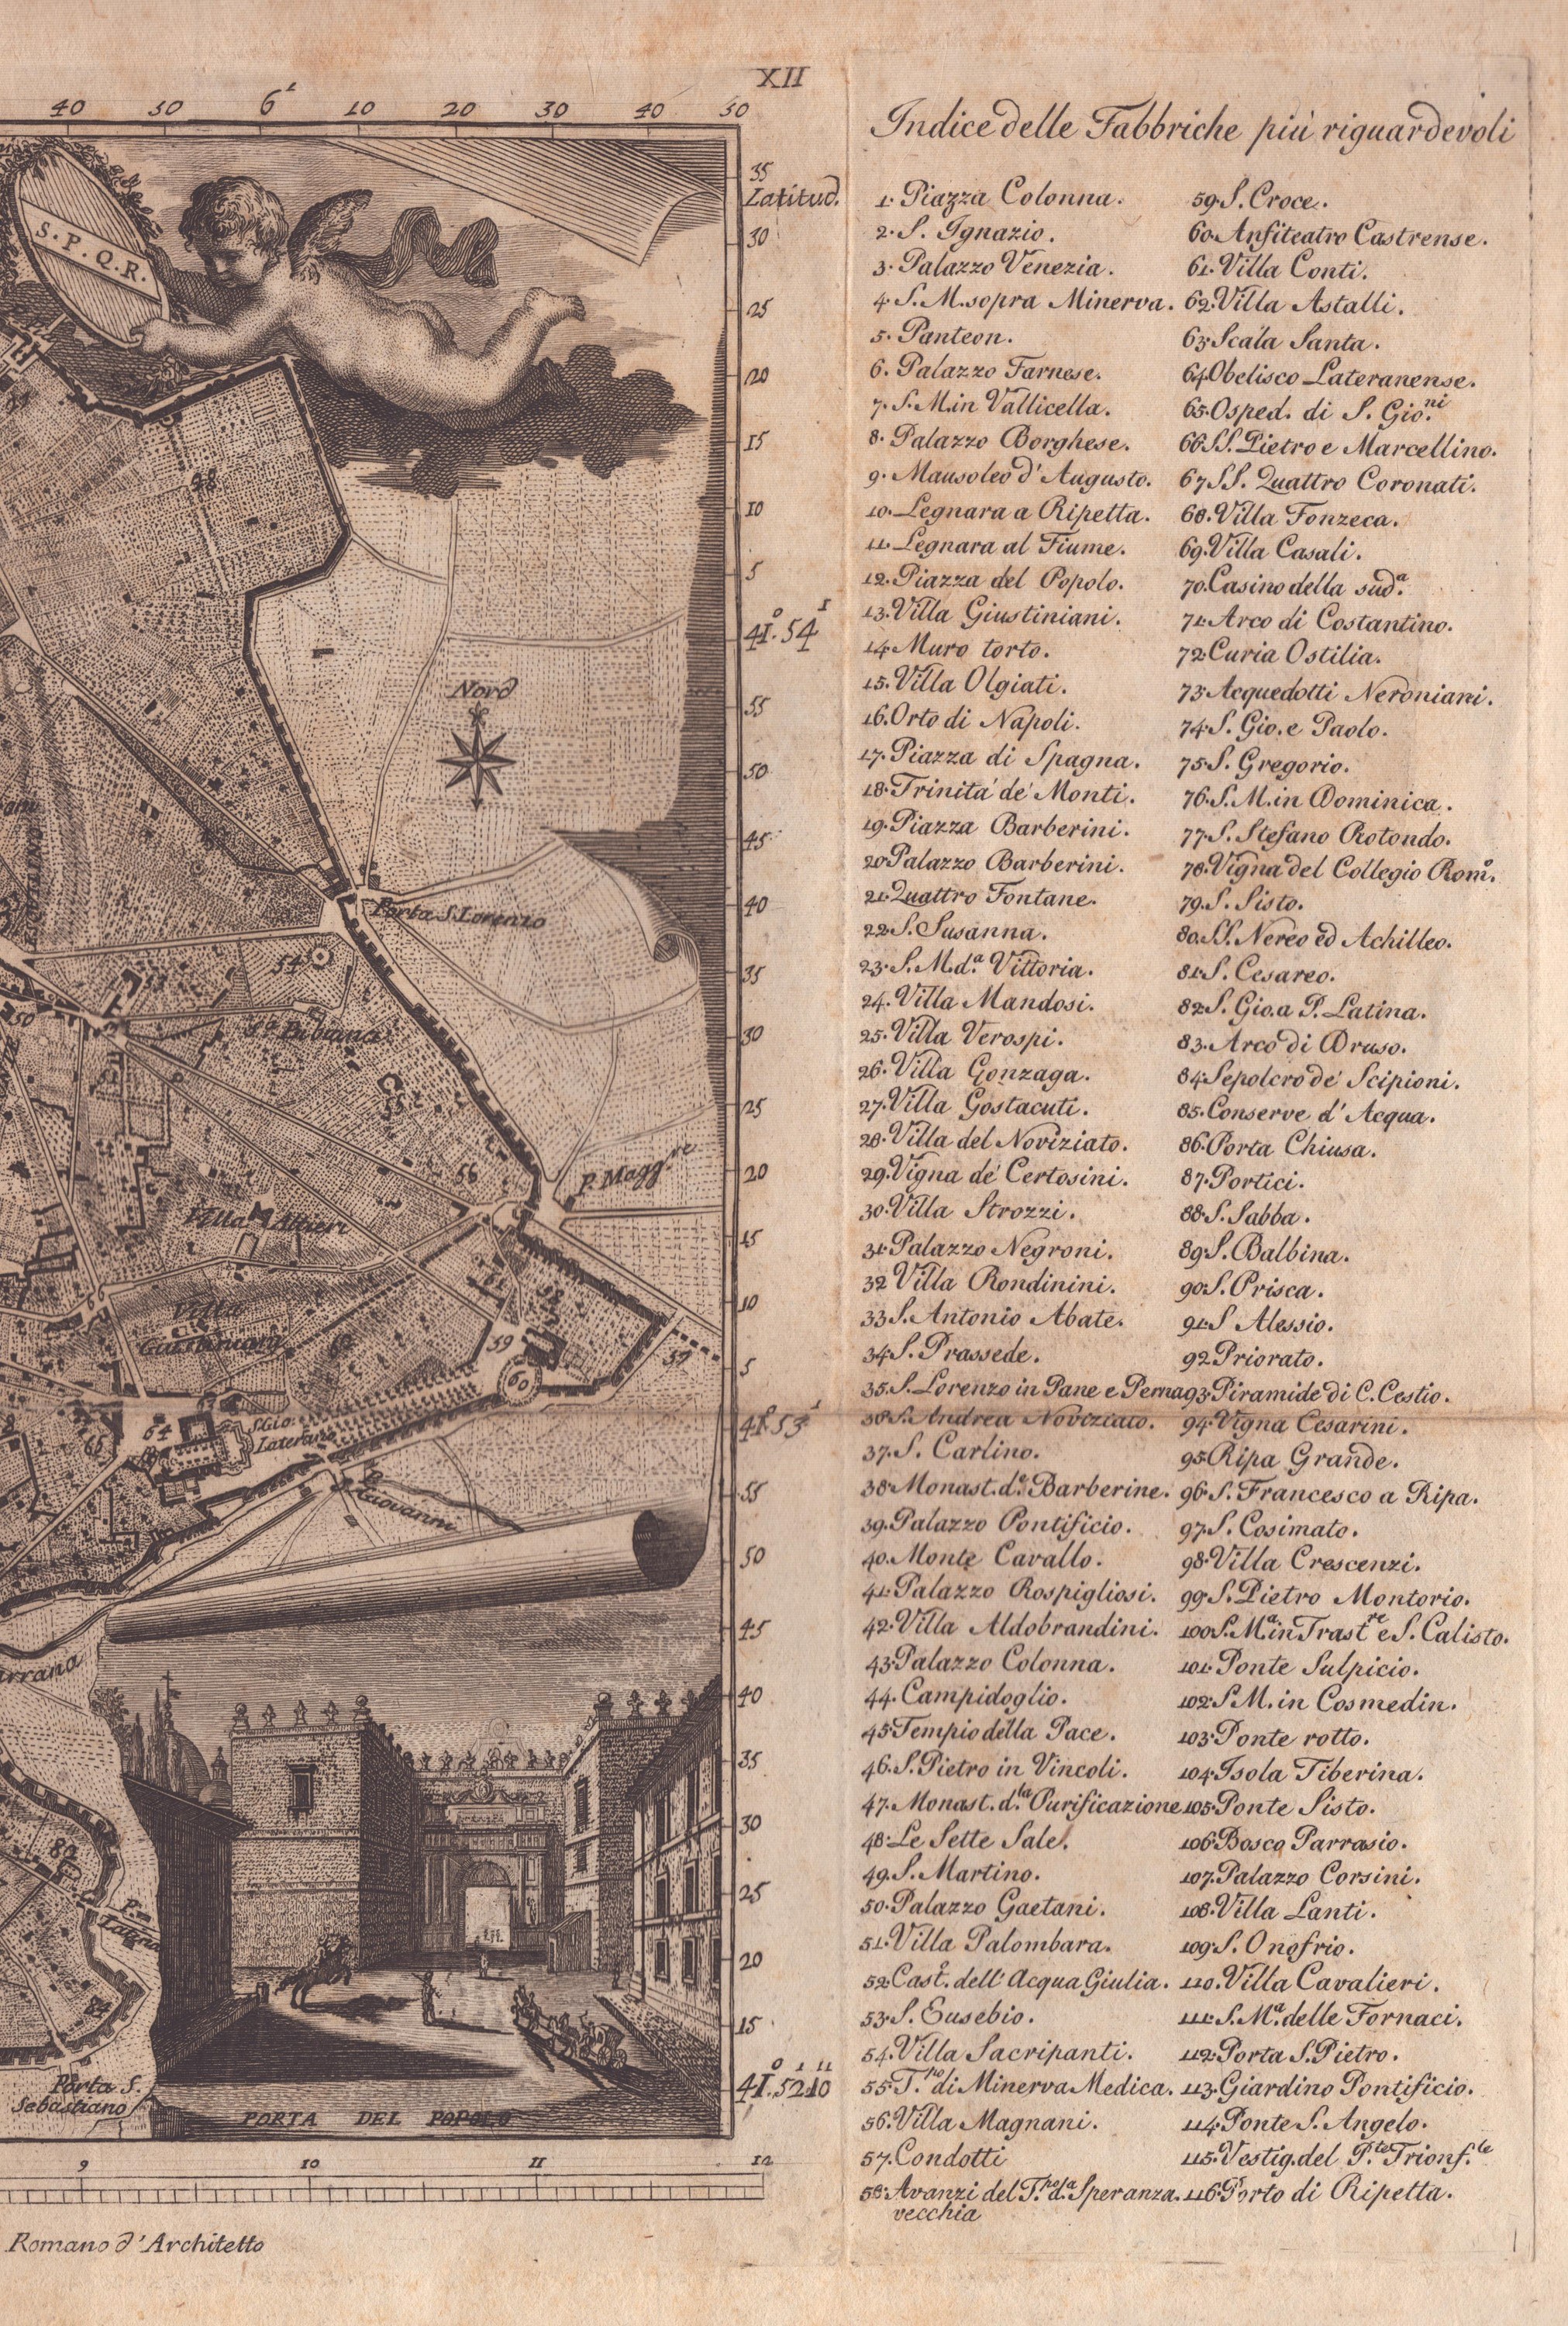 XII
40 50 6' 10 20 30 40 50
35
Latitud.
30
25
20
15
10
5
41°.54'
55
50
45
40
35
30
25
20
15
10
5
41°.53'
55
50
45
40
35
30
25
20
15
41°.52'.10"
S.P.Q.R.
28
Nord
Porta S. Lorenzo
54
53
50
S.a Bibiana
55
56
P. Magg.re
Villa Altieri
Villa
Giustiniani
58
59
57
60
64
65
S. Gio.
Laterano
P.
S. Giovanni
P.
Latina
84
Porta S.
Sebastiano
PORTA DEL POPOLO
9 10 11 12
Romano d'Architetto
Indice delle Fabbriche piú riguardevoli
1. Piazza Colonna.
2. S. Ignazio.
3. Palazzo Venezia.
4. S. M. sopra Minerva.
5. Panteon.
6. Palazzo Farnese.
7. S. M. in Vallicella.
8. Palazzo Borghese.
9. Mausoleo d'Augusto.
10. Legnara a Ripetta.
11. Legnara al Fiume.
12. Piazza del Popolo.
13. Villa Giustiniani.
14. Muro torto.
15. Villa Olgiati.
16. Orto di Napoli.
17. Piazza di Spagna.
18. Trinitá de' Monti.
19. Piazza Barberini.
20. Palazzo Barberini.
21. Quattro Fontane.
22. S. Susanna.
23. S. M. d.a Vittoria.
24. Villa Mandosi.
25. Villa Verospi.
26. Villa Gonzaga.
27. Villa Gostacuti.
28. Villa del Noviziato.
29. Vigna de' Certosini.
30. Villa Strozzi.
31. Palazzo Negroni.
32 Villa Rondinini.
33. S. Antonio Abate.
34. S. Prassede.
35. S. Lorenzo in Pane e Perna
36. S. Andrea Noviziato.
37. S. Carlino.
38. Monast. d.e Barberine.
39. Palazzo Pontificio.
40. Monte Cavallo.
41. Palazzo Rospigliosi.
42. Villa Aldobrandini.
43. Palazzo Colonna.
44. Campidoglio.
45. Tempio della Pace.
46. S. Pietro in Vincoli.
47. Monast. d.la Purificazione
48. Le Sette Sale.
49. S. Martino.
50. Palazzo Gaetani.
51. Villa Palombara.
52. Cast. dell'Acqua Giulia.
53. S. Eusebio.
54. Villa Sacripanti.
55. T.po di Minerva Medica.
56. Villa Magnani.
57. Condotti
58. Avanzi del T.po d.a Speranza
vecchia
59. S. Croce.
60. Anfiteatro Castrense.
61. Villa Conti.
62. Villa Astalli.
63. Scala Santa.
64. Obelisco Lateranense.
65. Osped. di S. Gio.ni
66. SS. Pietro e Marcellino.
67. SS. Quattro Coronati.
68. Villa Fonzeca.
69. Villa Casali.
70. Casino della sud.a
71. Arco di Costantino.
72. Curia Ostilia.
73. Acquedotti Neroniani.
74. S. Gio. e Paolo.
75. S. Gregorio.
76. S. M. in Dominica.
77. S. Stefano Rotondo.
78. Vigna del Collegio Rom.o
79. S. Sisto.
80. SS. Nereo ed Achilleo.
81. S. Cesareo.
82. S. Gio. a P. Latina.
83. Arco di Druso.
84. Sepolcro de' Scipioni.
85. Conserve d'Acqua.
86. Porta Chiusa.
87. Portici.
88. S. Sabba.
89. S. Balbina.
90. S. Prisca.
91. S Alessio.
92. Priorato.
93. Piramide di C. Cestio.
94. Vigna Cesarini.
95. Ripa Grande.
96. S. Francesco a Ripa.
97. S. Cosimato.
98. Villa Crescenzi.
99. S. Pietro Montorio.
100. S. M.a in Trast.re e S. Calisto.
101. Ponte Sulpicio.
102. S. M. in Cosmedin.
103. Ponte rotto.
104. Isola Tiberina.
105. Ponte Sisto.
106. Bosco Parrasio.
107. Palazzo Corsini.
108. Villa Lanti.
109. S. Onofrio.
110. Villa Cavalieri.
111. S. M.a delle Fornaci.
112. Porta S. Pietro.
113. Giardino Pontificio.
114. Ponte S. Angelo.
115. Vestig. del P.te Trionf.le
116. Porto di Ripetta.